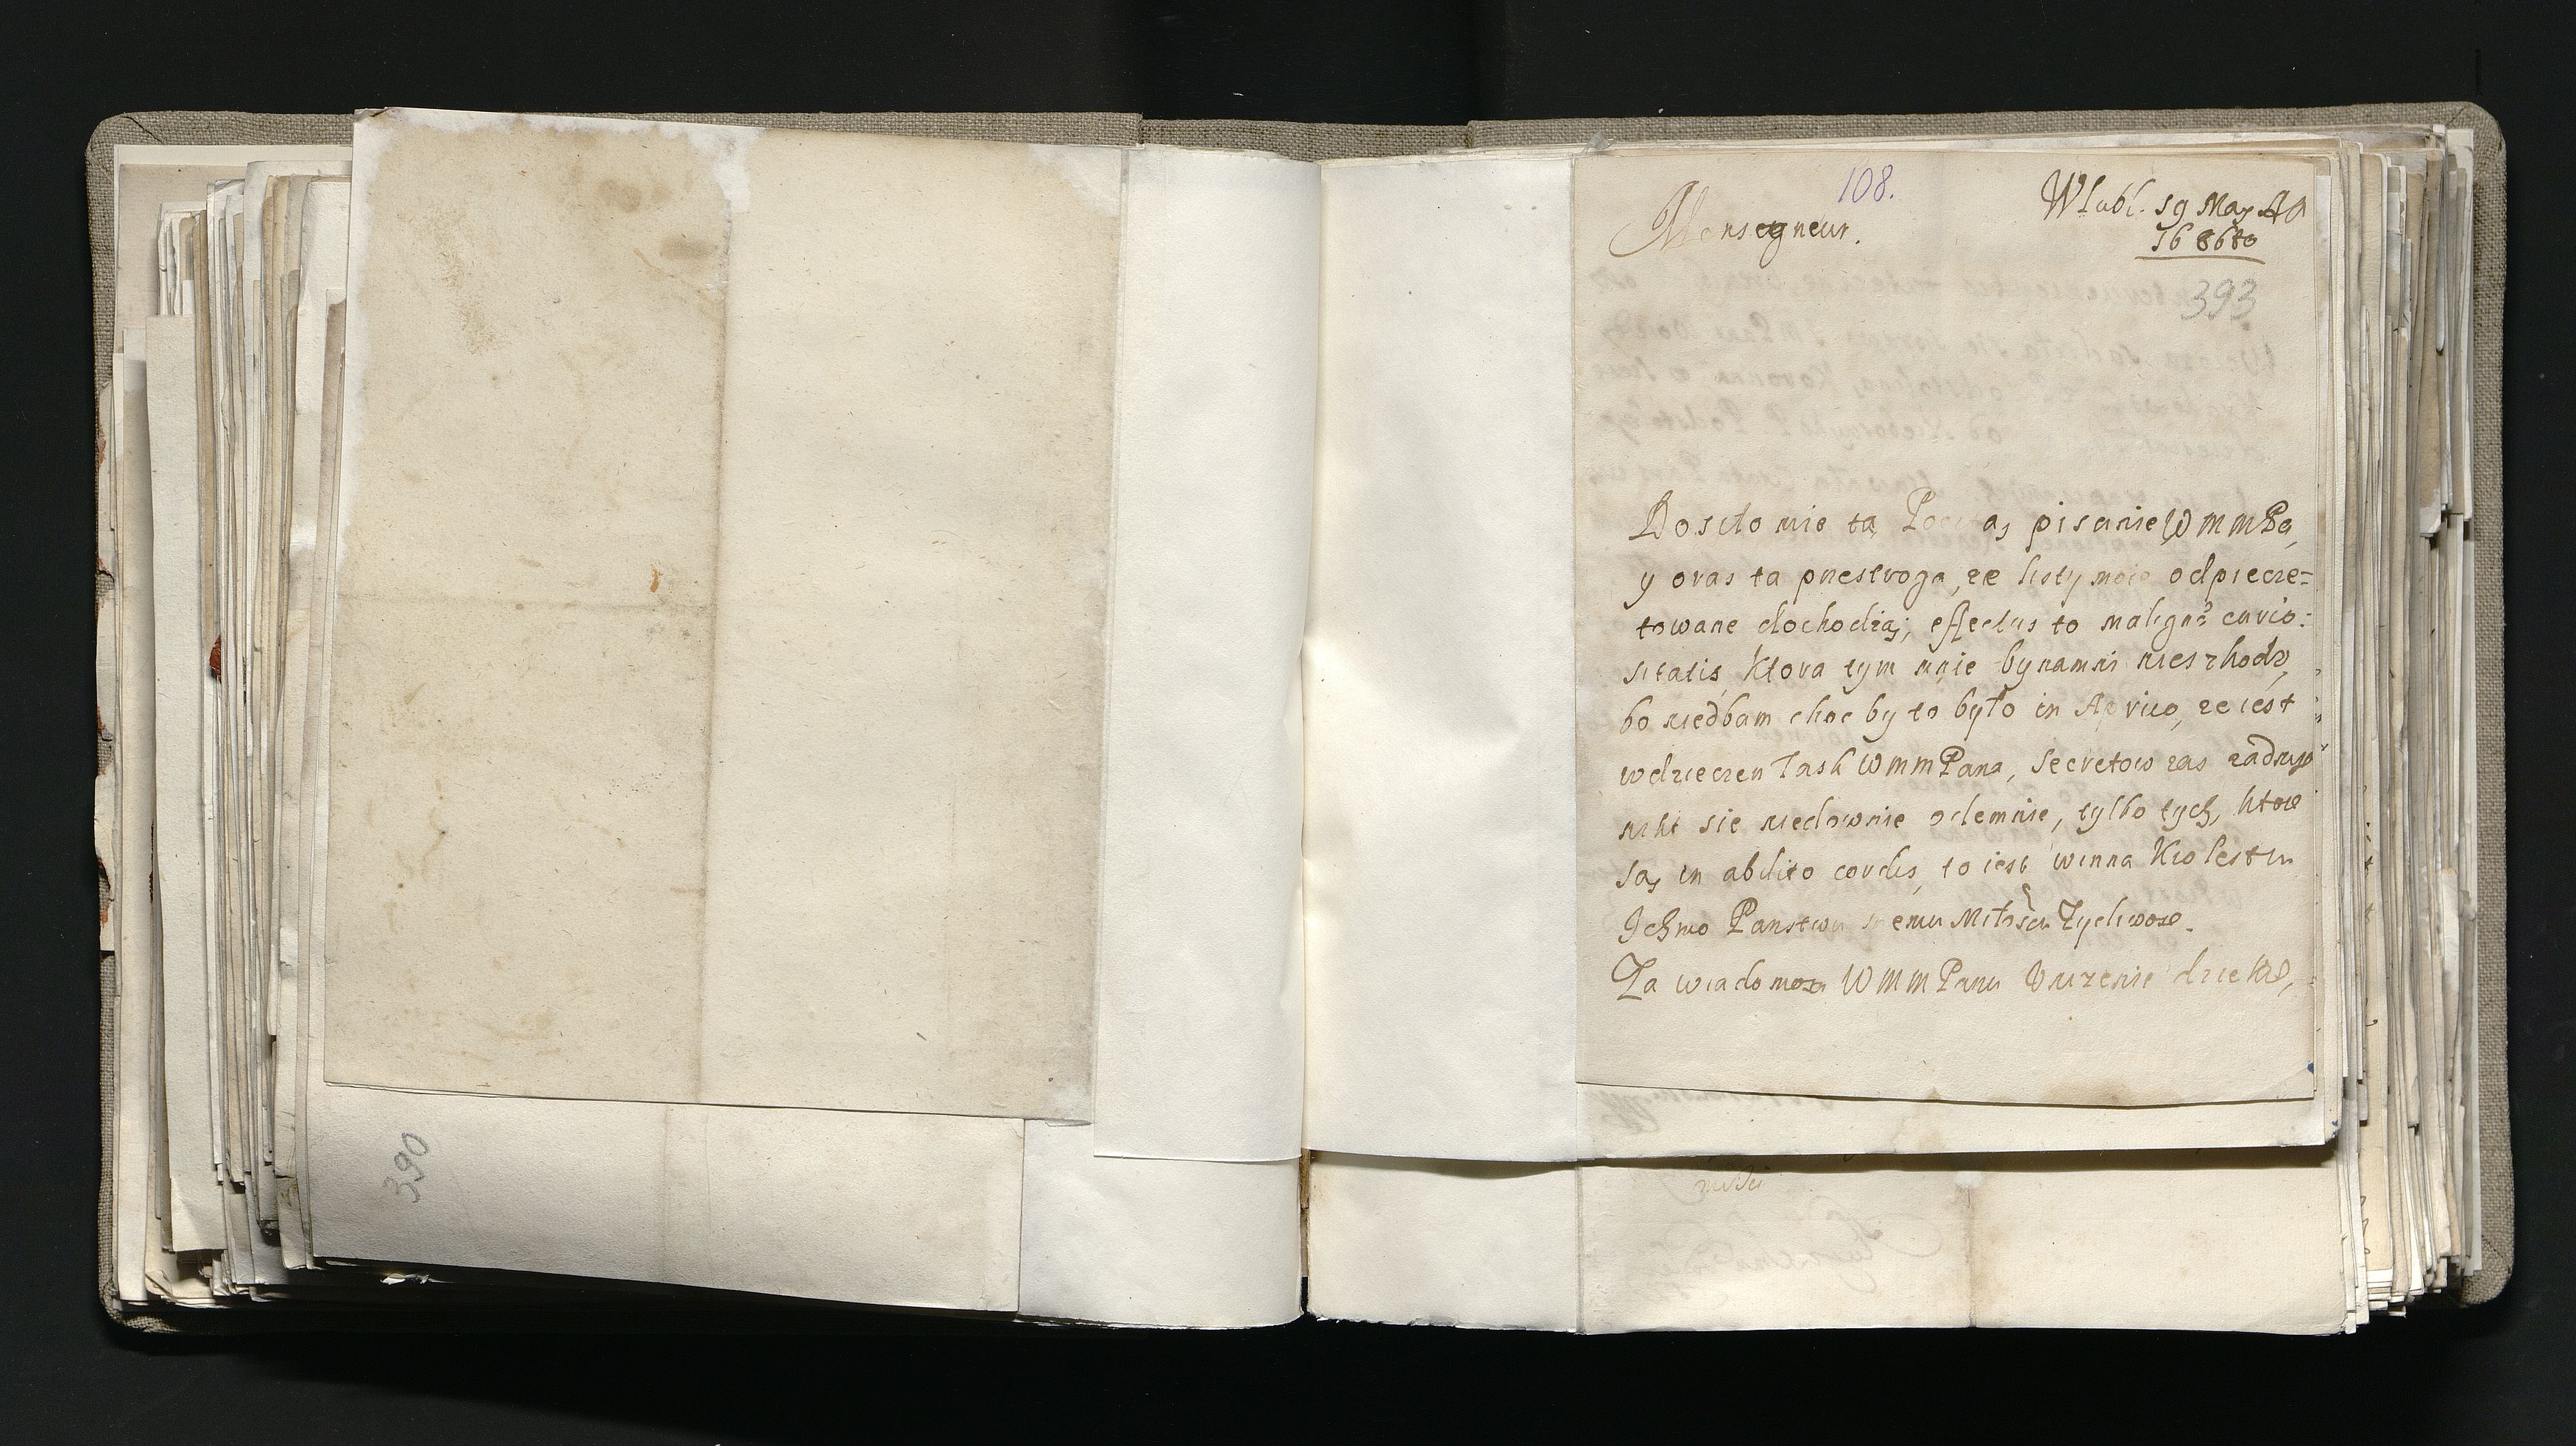 108.
Wlubl. 19 May A0
1686to
Monsegneur.
393
Doszło mie tą Pocztą, pisanie WMMPa,
y oras ta przestroga, ze listy moie odpiecze=
towane dochodzą; effectus to malignae curio:
sitatis, ktora tym mnie bynamni nieszkodzi,
bo niedbam choc by to było in Aprico, ze iest
wdzieczen łask WMMPana, Secretow zas zadnych
nikt sie niedowie odemnie, tylko tych, ktore
są, in abdito cordis, to iest winna Krolestw
Ichmo Panstwu memu Miłość Zycliwosc.
Za wiadomosci WMMPanu Unizenie dziekuie,
390